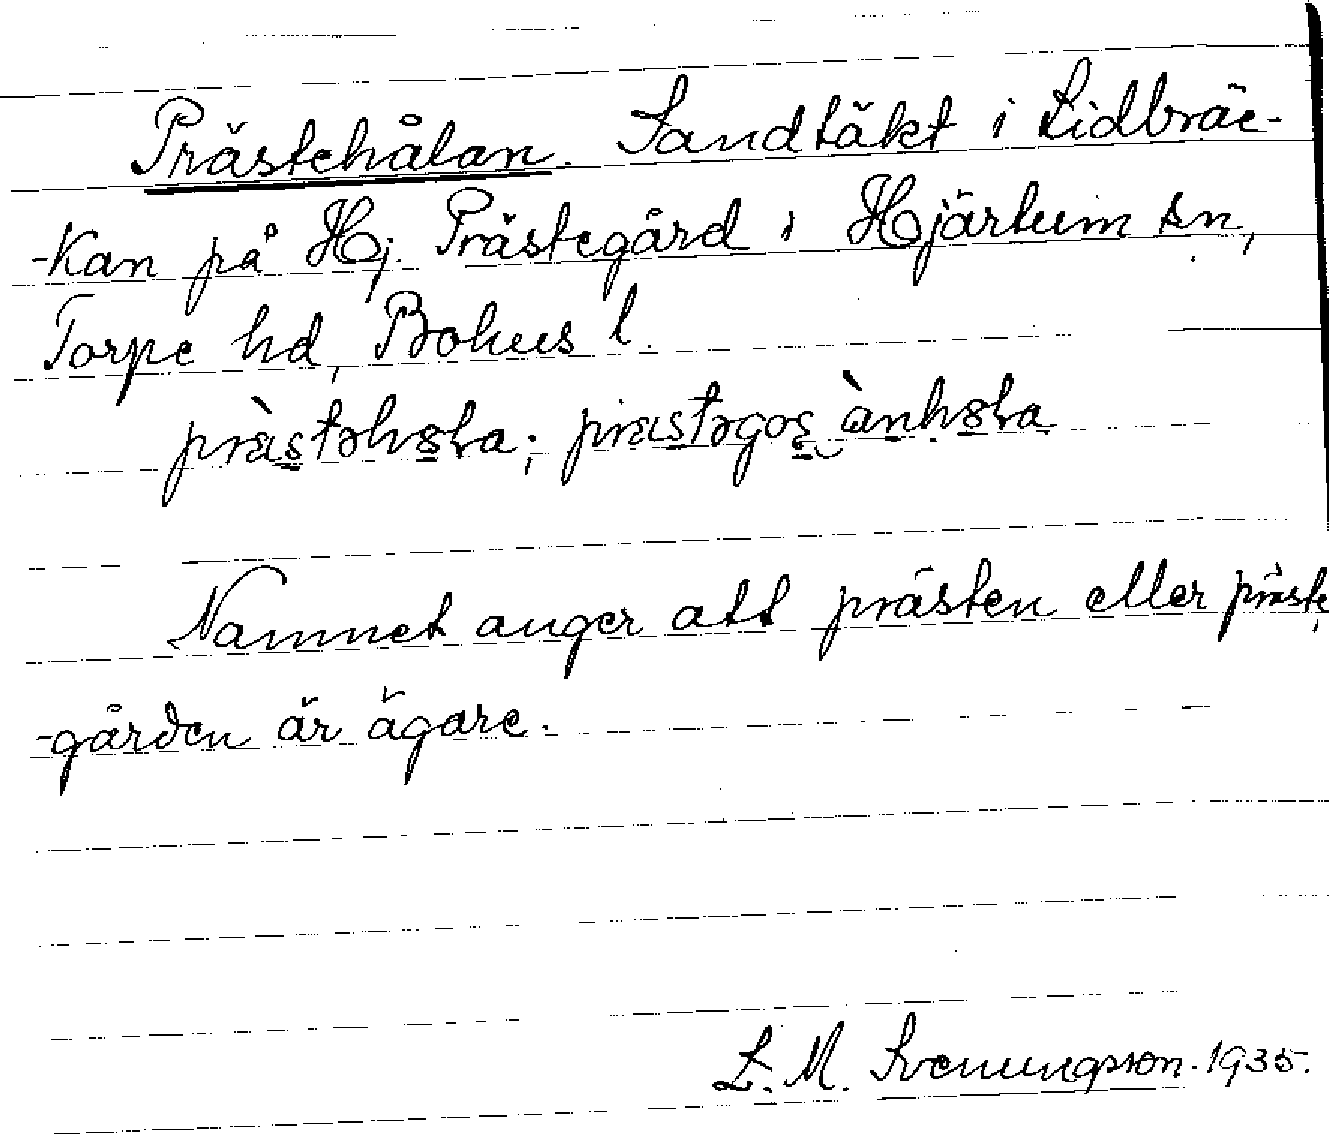 Prästehålan. Sandtäkt i Lidbräc-
-kan på Hj. Prästegård i Hjärtum sn,
Torpe hd, Bohus l.
Namnet anger att prästen eller präste
-gården är ägare.
L. M. Svenungsson. 1935.